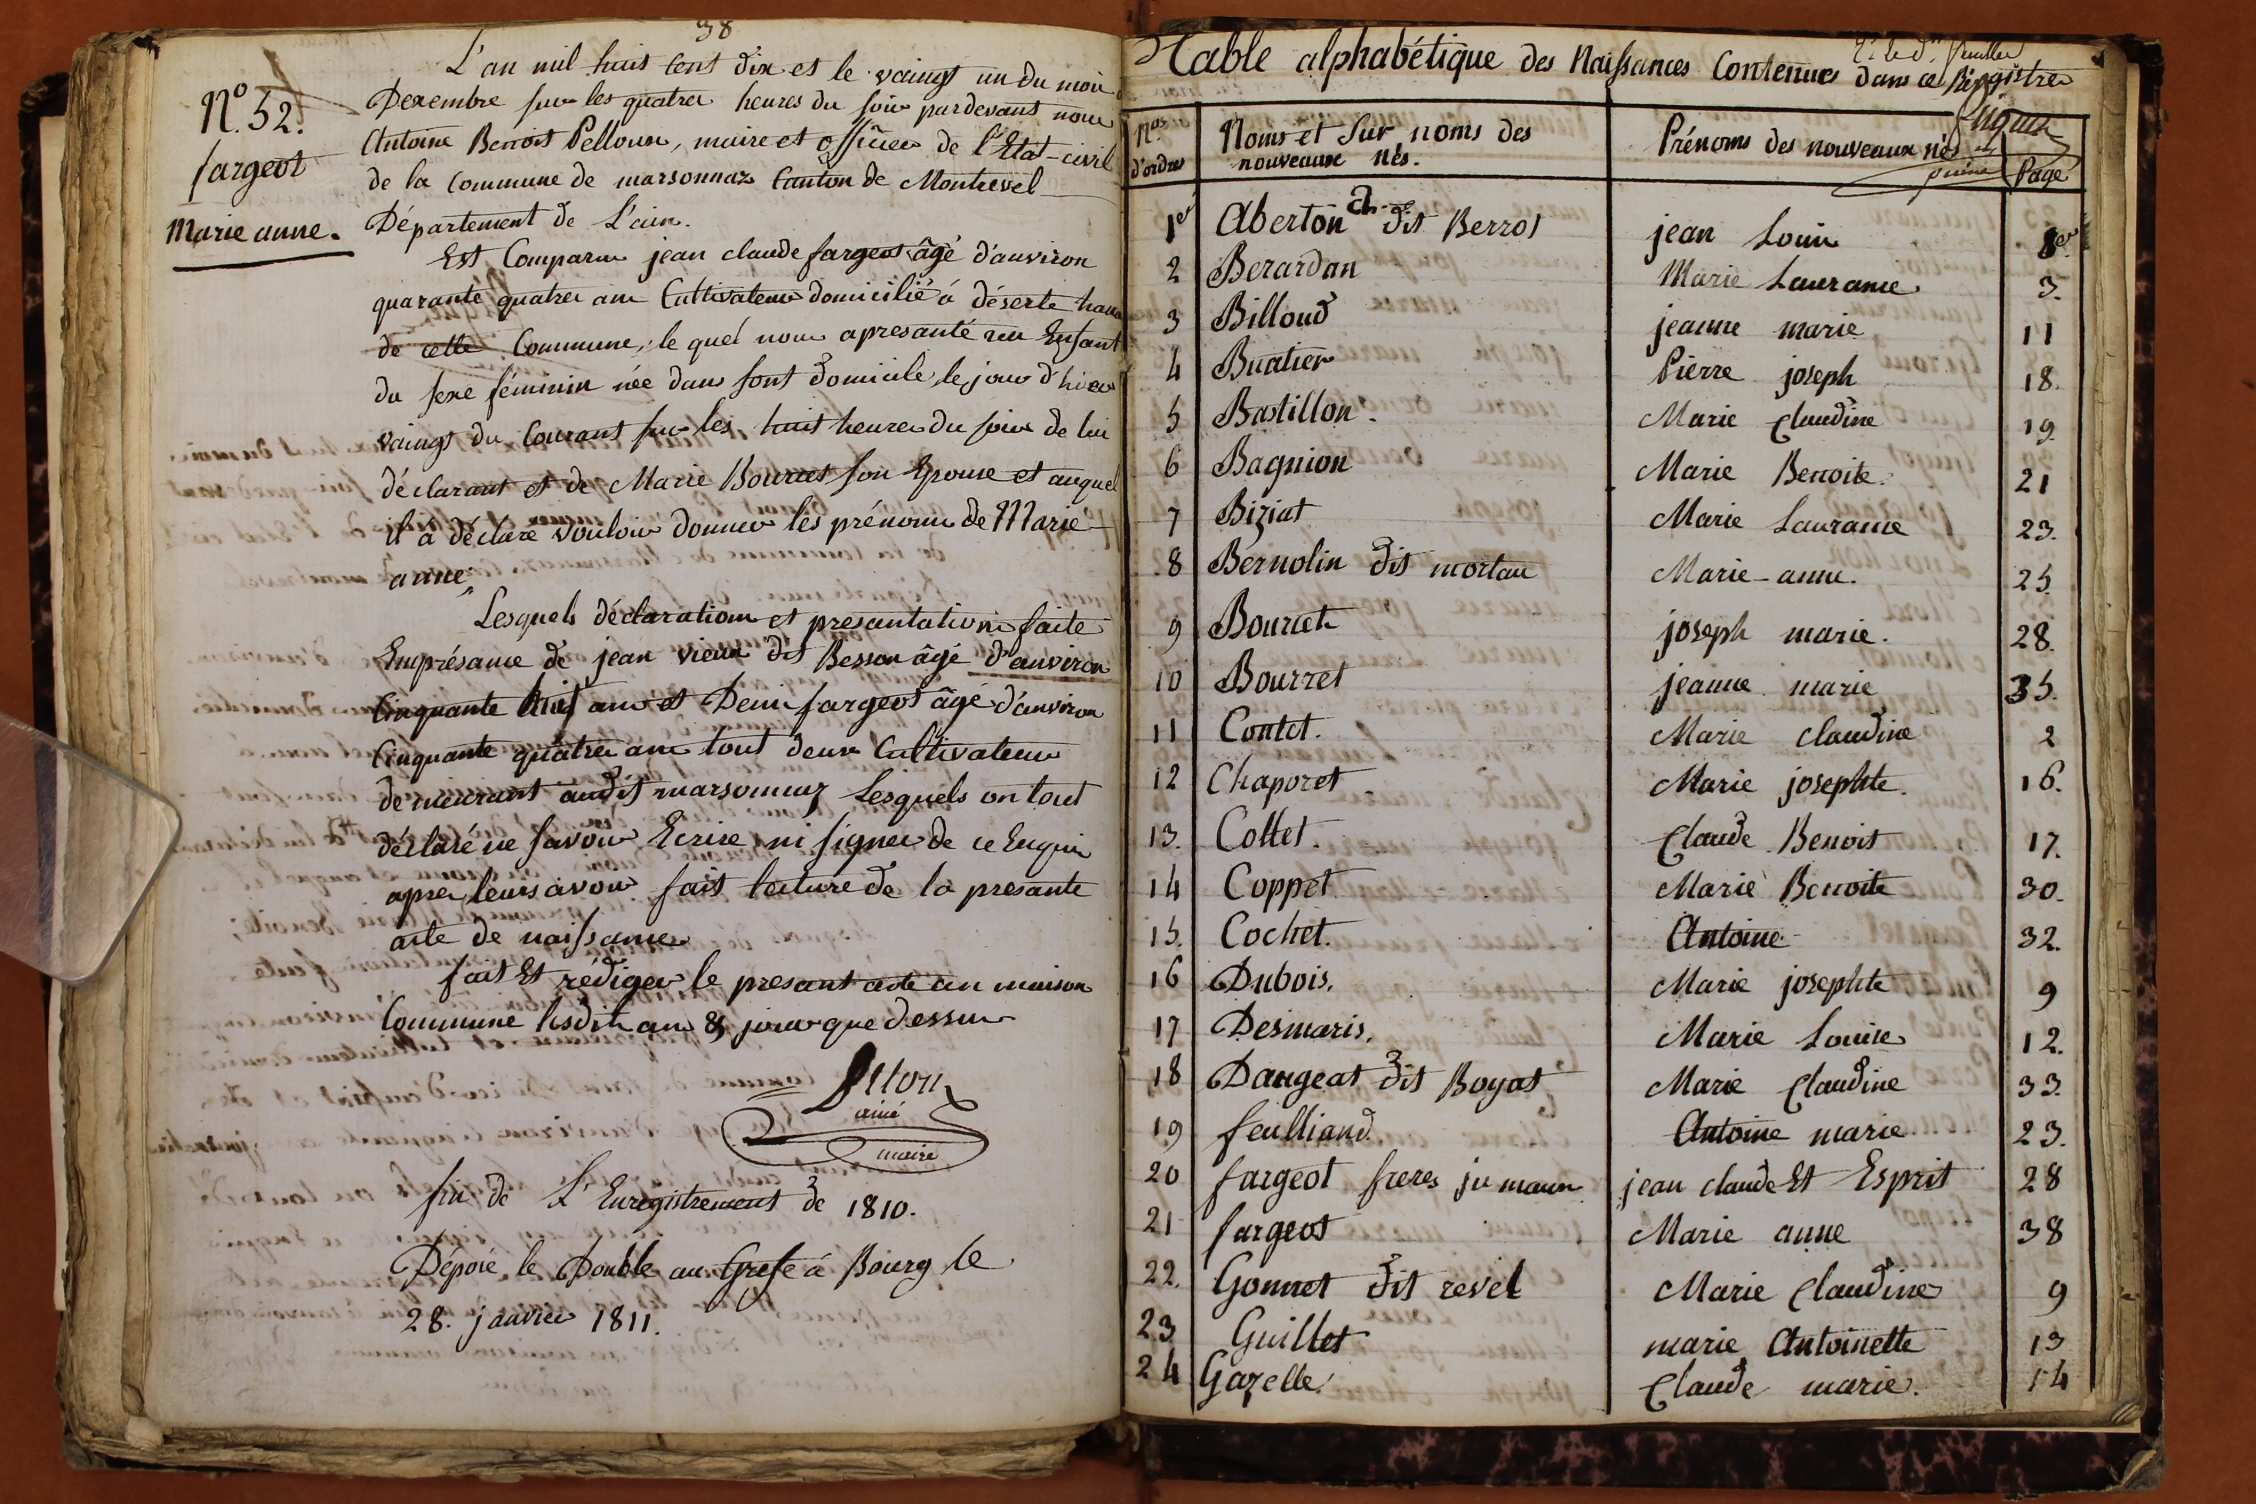 38
N.o 52.
fargeot
Marie anne.
L'an mil huit cent dix et le vaingt un du mois
Dexembre sur les quatres heures du soir pardevant nous
Antoine Benoit Pelloux, maire et officier de l'Etat-civil
de la Commune de marsonnaz Canton de Montrevel
Département de L'ain.
Est Comparu jean claude fargeot âgé d'anviron
quarante quatres ans Cultivateur domicilié à déserte haute
de cette Commune, le quel nous apresanté un Enfant
du sexe féminin née dans sont domicile, le jour d'hier
vaingt du Courant sur les huit heures du soir de lui
déclarant et de Marie Bourcet son Epouse et auquel
il à déclaré vouloir donner les prénoms de Marie
anne;
Lesquels déclaration et presantation faite
Emprésance de jean vieux dit Besson âgé d'anviron
Cinquante huit ans et Denis fargeot âgé d'anviron
Cinquante quatres ans tout deux Cultivateurs
demeurant audit marsonnaz Lesquels on tout
déclaré ne savoir Ecrire ni signer de ce Enquis
apres leurs avoir fait lecture de la presante
acte de naissance
fait Et rédiger le presant acte an maison
Commune lesdit an & jour que dessus
ainé
maire
fin de L'Enregistrement de 1810.
Dépozé le Double au Grefe à Bourg le
28. janvier 1811.
Table alphabétique des Naissances Contenues dans ce Régistre
Nos d'ordres
Noms et Sur noms des nouveaux nés.
Prénoms des nouveaux nés
Page
1er Aberton dit Berrot jean Louis 1er
2 Berardan Marie Laurance 3.
3 Billoud jeanne marie 11
4 Buatier Pierre joseph 18.
5 Bastillon. Marie Claudine 19.
6 Bagnion Marie Benoite. 21
7 Biziat Marie Laurance 23.
8 Bernolin dit mortan Marie-anne. 25.
9 Bourcet joseph marie. 28.
10 Bourzet jeanne marie 35.
11 Contet. Marie claudine 2
12 Chaporet Marie josephte. 16.
13. Collet. Claude Benoit 17.
14 Coppet Marie Benoite 30.
15. Cochet. Antoine 32.
16 Dubois. Marie josephte 9
17 Desmaris. Marie Louise 12.
18 Daugeat dit Boyat Marie Claudine 33.
19 feulliand. Antoine marie 23.
20 fargeot freres jumaux jean claude Et Esprit 28
21 fargeot Marie anne 38
22. Gonnet dit revel Marie Claudine 9
23 Guillet marie Antoinette 13
24 Gazelle. Claude marie. 14